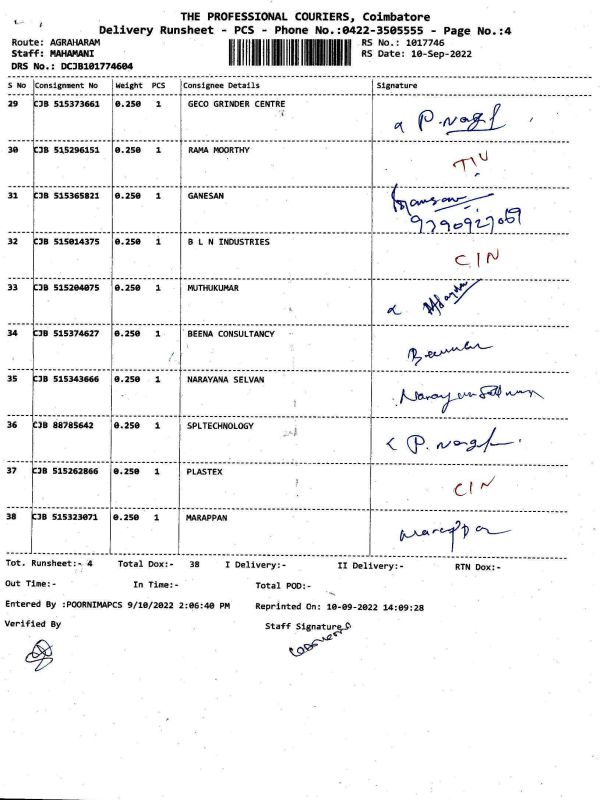 THE PROFESSIONAL COURIERS, Coimbatore
Delivery Runsheet - PCS - Phone No.:0422-3505555 - Page No.:4
Route: AGRAHARAM RS No.: 1017746
Staff: MAHAMANI RS Date: 10-Sep-2022
DRS No.: DCJB101774604
S No Consignment No Weight PCS Consignee Details Signature
29 CJB 515373661 0.250 1 GECO GRINDER CENTRE
30 CJB 515296151 0.250 1 RAMA MOORTHY
31 CJB 515365821 0.250 1 GANESAN
9790927069
32 CJB 515014375 0.250 1 B L N INDUSTRIES CIN
33 CJB 515204075 0.250 1 MUTHUKUMAR
34 CJB 515374627 0.250 1 BEENA CONSULTANCY
35 CJB 515343666 0.250 1 NARAYANA SELVAN
36 CJB 88785642 0.250 1 SPLTECHNOLOGY
37 CJB 515262866 0.250 1 PLASTEX CIN
38 CJB 515323071 0.250 1 MARAPPAN
Tot. Runsheet:- 4 Total Dox:- 38 I Delivery:- II Delivery:- RTN Dox:-
Out Time:- In Time:- Total POD:-
Entered By :POORNIMAPCS 9/10/2022 2:06:40 PM Reprinted On: 10-09-2022 14:09:28
Verified By Staff Signature